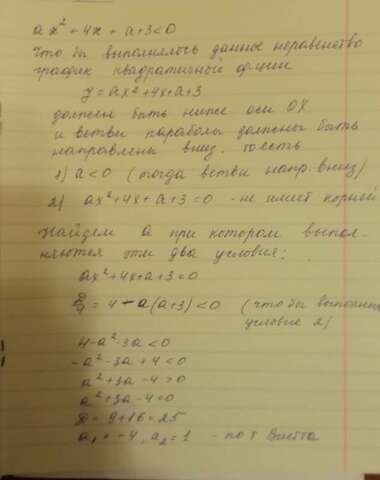 ax² + 4x + a + 3 < 0
Что бы выполнялось данные неравенство
график квадратичной ф-ции
y = ax² + 4x + a + 3
должен быть ниже оси OX
и ветви параболы должны быть
направлены вниз. то есть
1) a < 0 (тогда ветви напр. вниз)
2) ax² + 4x + a + 3 = 0 - не имеет корней
Найдем a при котором выпол-
няются эти два условия:
ax² + 4x + a + 3 = 0
D/4 = 4 - a(a+3) < 0 (что бы выполнял
условие 2)
4 - a² - 3a < 0
-a² - 3a + 4 < 0
a² + 3a - 4 > 0
a² + 3a - 4 = 0
D = 9 + 16 = 25
a₁ = -4, a₂ = 1 - по т Виета